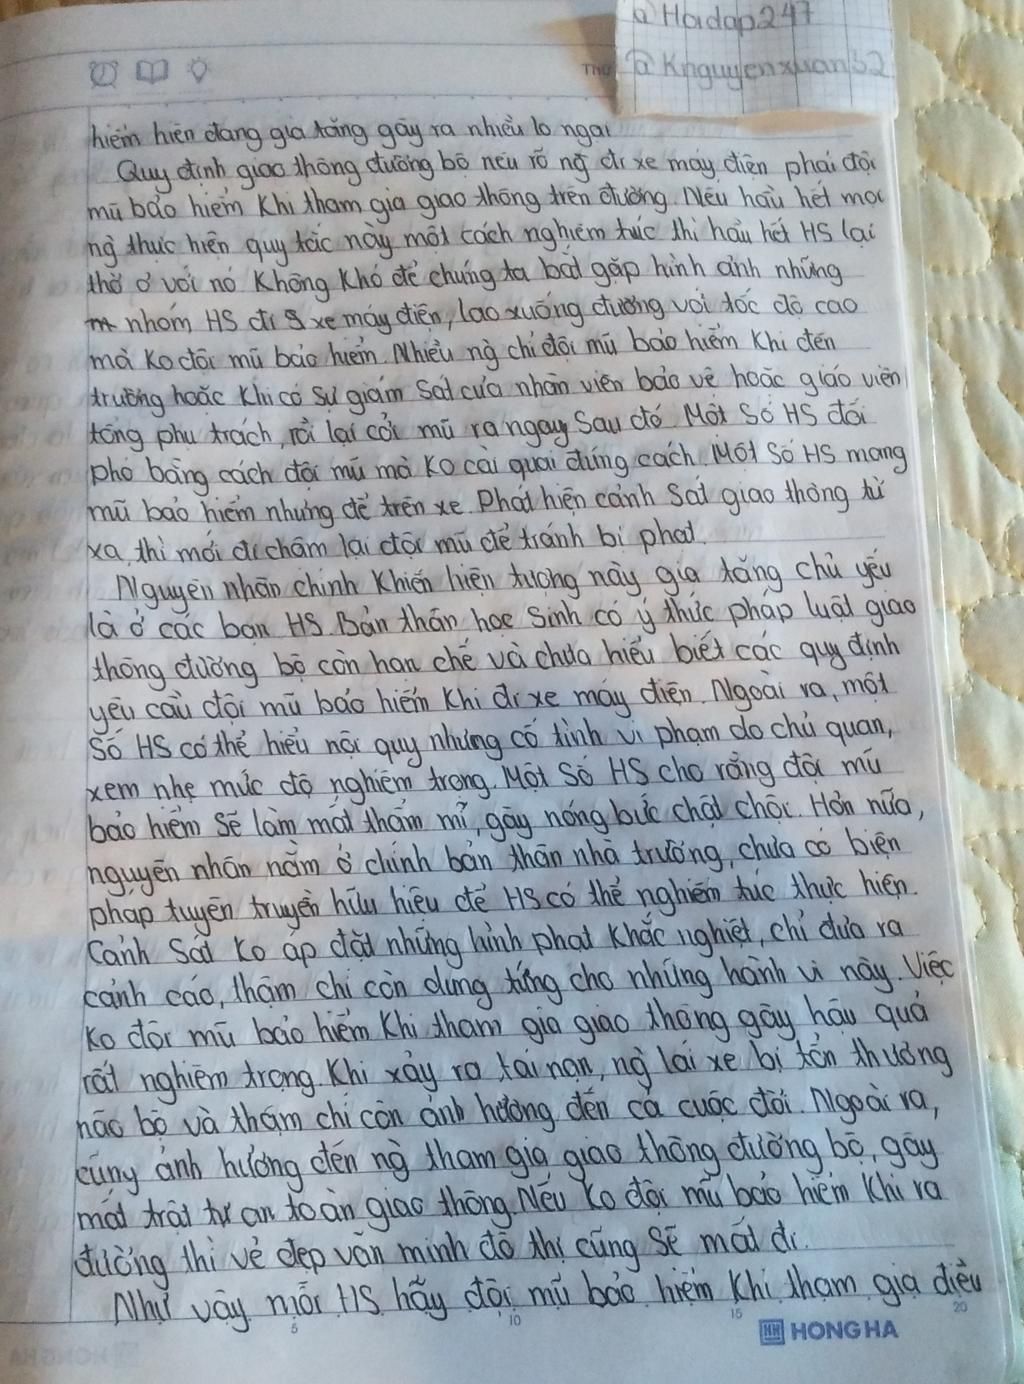 @Hoidap247
THỨ @Knguyenxuan32
hiểm hiện đang gia tăng gây ra nhiều lo ngại
Quy định giao thông đường bộ nêu rõ ng` đi xe máy điện phải đội
mũ bảo hiểm Khi tham gia giao thông trên đường. Nếu hầu hết mọi
ng` thực hiện quy tắc này một cách nghiêm túc thì hầu hết HS lại
thờ ơ với nó Không Khó để chúng ta bắt gặp hình ảnh những
nhóm HS đi xe máy điện, lao xuống đường với tốc độ cao
mà Ko đội mũ bảo hiểm. Nhiều ng` chỉ đội mũ bảo hiểm Khi đến
trường hoặc Khi có sự giám sát của nhân viên bảo vệ hoặc giáo viên
tổng phụ trách, rồi lại cởi mũ ra ngay sau đó. Một số HS đối
phó bằng cách đội mũ mà Ko cài quai đúng cách. Một số HS mang
mũ bảo hiểm nhưng để trên xe. Phát hiện cảnh sát giao thông từ
xa, thì mới đi chậm lại đội mũ để tránh bị phạt.
Nguyên nhân chính Khiến hiện tượng này gia tăng chủ yếu
là ở các bạn HS. Bản thân học sinh có ý thức pháp luật giao
thông đường bộ còn hạn chế và chưa hiểu biết các quy định
yêu cầu đội mũ bảo hiểm Khi đi xe máy điện. Ngoài ra, một
số HS có thể hiểu nội quy nhưng cố tình vi phạm do chủ quan,
xem nhẹ mức độ nghiêm trọng. Một số HS cho rằng đội mũ
bảo hiểm sẽ làm mất thẩm mĩ, gây nóng bức chật chội. Hơn nữa,
nguyên nhân nằm ở chính bản thân nhà trường, chưa có biện
pháp tuyên truyền hữu hiệu để HS có thể nghiêm túc thực hiện.
Cảnh sát Ko áp đặt những hình phạt Khắc nghiệt, chỉ đưa ra
cảnh cáo, thậm chí còn dửng dưng cho những hành vi này. Việc
Ko đội mũ bảo hiểm Khi tham gia giao thông gây hậu quả
rất nghiêm trọng. Khi xảy ra tai nạn, ng` lái xe bị tổn thương
não bộ và thậm chí còn ảnh hưởng đến cả cuộc đời. Ngoài ra,
cũng ảnh hưởng đến ng` tham gia giao thông đường bộ, gây
mất trật tự an toàn giao thông. Nếu Ko đội mũ bảo hiểm Khi ra
đường thì vẻ đẹp văn minh đô thị cũng sẽ mất đi.
Như vậy mỗi HS hãy đội mũ bảo hiểm Khi tham gia điều
5 10 15 20
HH HONG HA